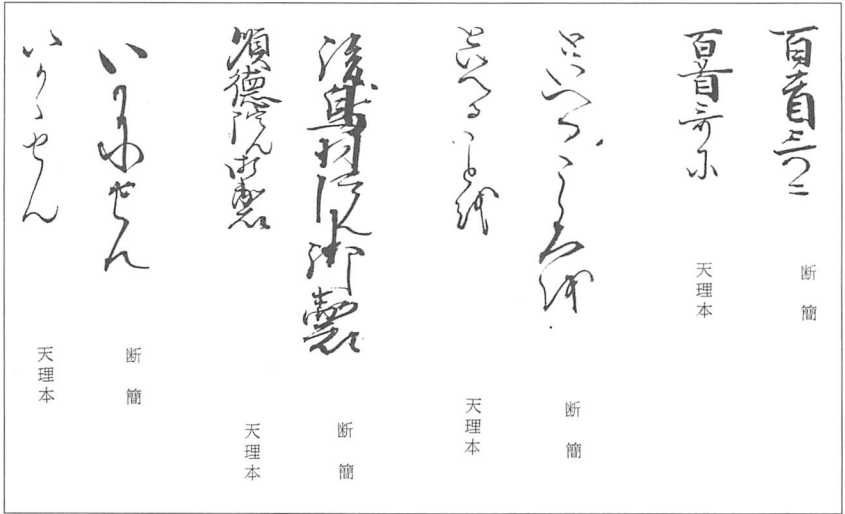 百首うたニ
断簡
百首哥に
天理本
といへるこころを
断簡
といへることを
天理本
後鳥羽院御製
断簡
順徳院御製
天理本
いかにせん
断簡
いかゝせん
天理本